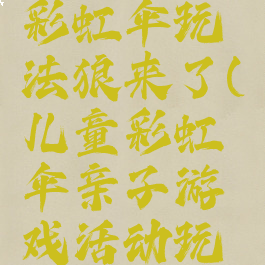 彩虹伞玩
法狼来了(
儿童彩虹
伞亲子游
戏活动玩